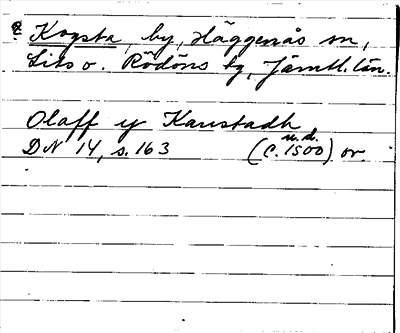 Kogsta, by, Häggenås sn,
Lits o. Rödöns tg, Jämtl. län.
Olaff y Kaustadh
n.d.
DN 14, s. 163 (c. 1500) or